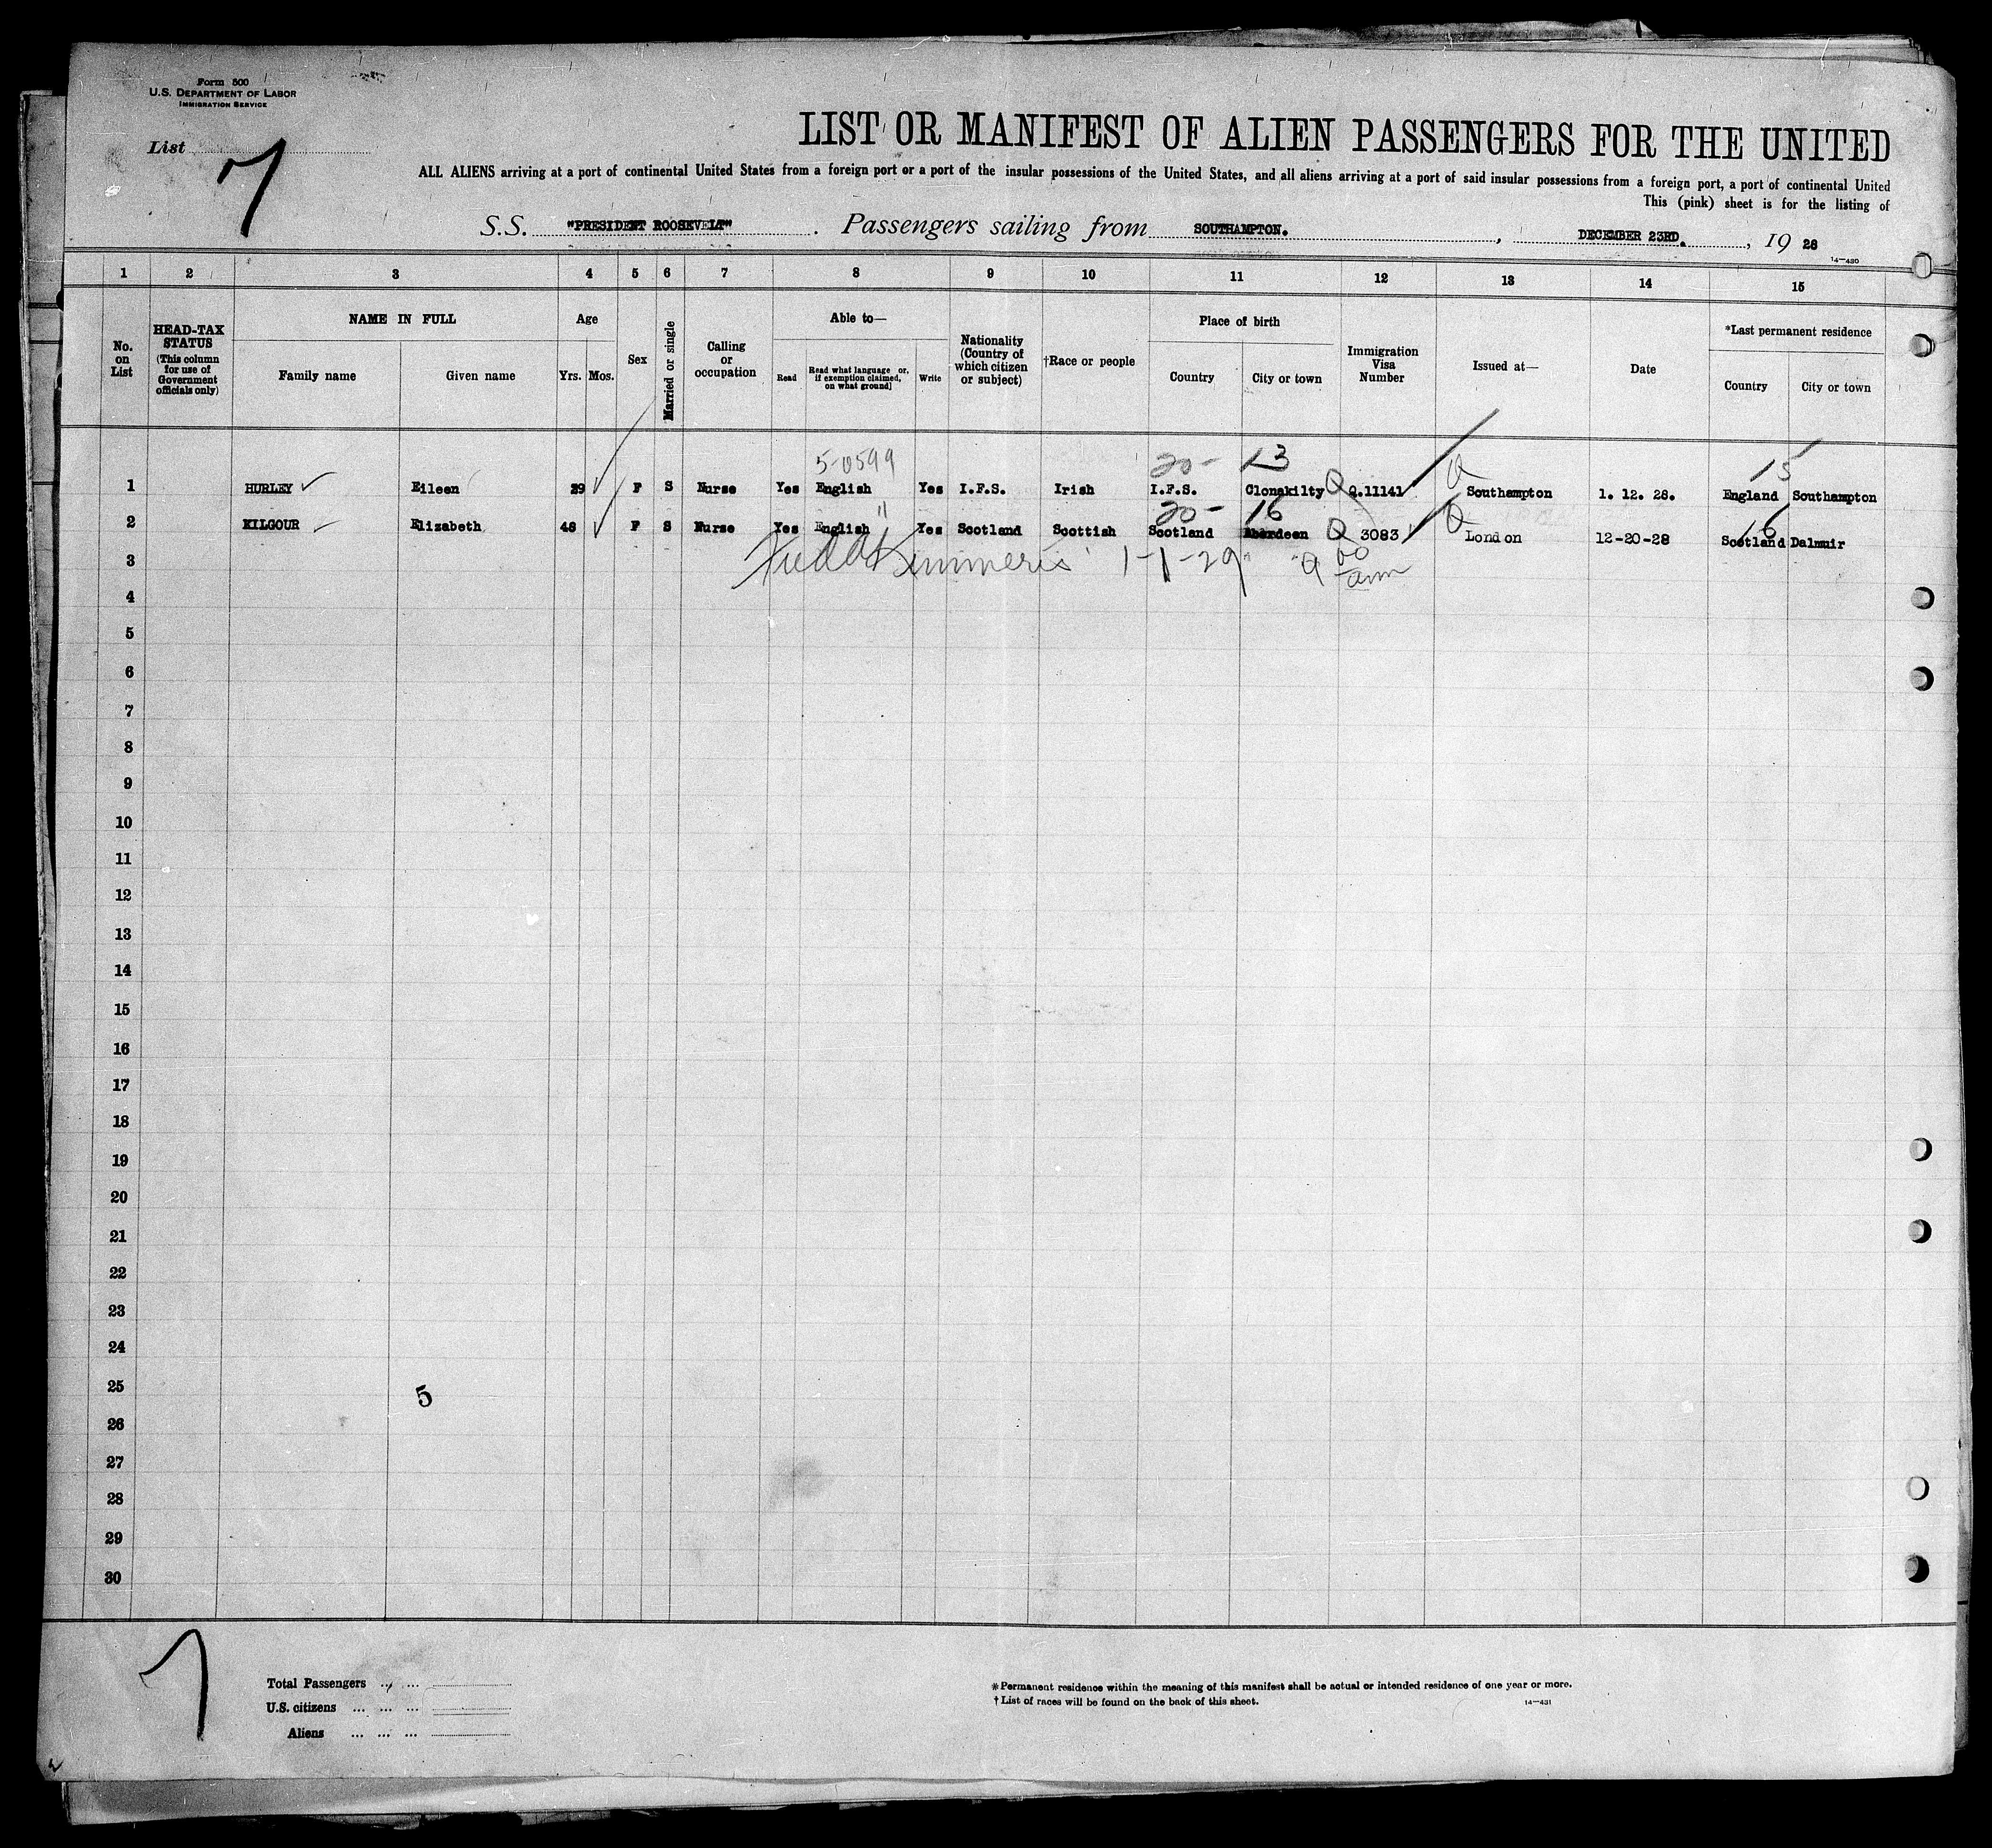 Form 500
U.S. DEPARTMENT OF LABOR
IMMIGRATION SERVICE
List 7
LIST OR MANIFEST OF ALIEN PASSENGERS FOR THE UNITED
ALL ALIENS arriving at a port of continental United States from a foreign port or a port of the insular possessions of the United States, and all aliens arriving at a port of said insular possessions from a foreign port, a port of continental United
This (pink) sheet is for the listing of
S.S. "PRESIDENT ROOSEVELT" . Passengers sailing from SOUTHAMPTON. , DECEMBER 23RD. , 19 28
14—430
1 2 3 4 5 6 7 8 9 10 11 12 13 14 15
No. on List
HEAD-TAX STATUS (This column for use of Government officials only)
NAME IN FULL
Family name Given name
Age
Yrs. Mos.
Sex
Married or single
Calling or occupation
Able to—
Read Read what language or, if exemption claimed, on what ground] Write
Nationality (Country of which citizen or subject)
†Race or people
Place of birth
Country City or town
Immigration Visa Number
Issued at—
Date
*Last permanent residence
Country City or town
5-0599 20- 13 15
1 HURLEY Eileen 29 F S Nurse Yes English Yes I.F.S. Irish I.F.S. Clonakilty Q Q.11141 Q Southampton 1. 12. 28. England Southampton
20- 16 16
2 KILGOUR Elizabeth 48 F S Nurse Yes English " Yes Scotland Scottish Scotland Aberdeen Q 3083 Q London 12-20-28 Scotland Dalmuir
3 1-1-29 9 00 am
4
5
6
7
8
9
10
11
12
13
14
15
16
17
18
19
20
21
22
23
24
25 5
26
27
28
29
30
7
Total Passengers ... ...
U.S. citizens ... ... ...
Aliens ... ... ...
*Permanent residence within the meaning of this manifest shall be actual or intended residence of one year or more.
†List of races will be found on the back of this sheet. 14—431